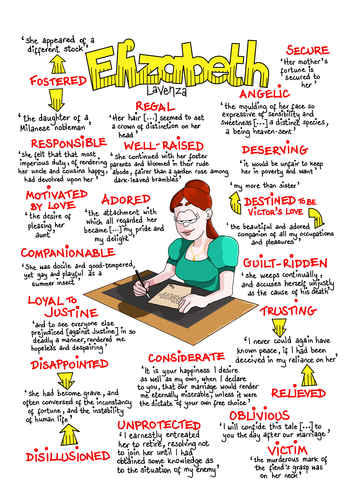 Elizabeth
Lavenza
'she appeared of a
different stock'
FOSTERED
'the daughter of a
Milanese nobleman'
SECURE
'Her mother's
fortune is
secured to
her'
REGAL
'Her hair [...] seemed to set
a crown of distinction on her
head'
ANGELIC
'the moulding of her face so
expressive of sensibility and
sweetness [...] a distinct species,
a being heaven-sent'
RESPONSIBLE
'she felt that that most
imperious duty, of rendering
her uncle and cousins happy,
had devolved upon her'
WELL-RAISED
'She continued with her foster
parents and bloomed in their rude
abode, fairer than a garden rose among
dark-leaved brambles'
DESERVING
'it would be unfair to keep
her in poverty and want'
MOTIVATED
BY LOVE
'the desire of
pleasing her
aunt'
ADORED
'the attachment with
which all regarded her
became [...] my pride and
my delight'
'my more than sister'
DESTINED TO BE
VICTOR'S LOVE
'the beautiful and adored
companion of all my occupations
and pleasures'
COMPANIONABLE
'She was docile and good-tempered,
yet gay and playful as a
summer insect'
GUILT-RIDDEN
'she weeps continually,
and accuses herself unjustly
as the cause of his death'
LOYAL TO
JUSTINE
'and to see everyone else
prejudiced [against Justine] in so
deadly a manner, rendered me
hopeless and despairing'
TRUSTING
'I never could again have
known peace, if I had been
deceived in my reliance on her'
RELIEVED
DISAPPOINTED
'she had become grave, and
often conversed of the inconstancy
of fortune, and the instability
of human life'
DISILLUSIONED
CONSIDERATE
'It is your happiness I desire
as well as my own, when I declare
to you, that our marriage would render
me eternally miserable, unless it were
the dictate of your own free choice'
UNPROTECTED
'I earnestly entreated
her to retire, resolving not
to join her until I had
obtained some knowledge as
to the situation of my enemy'
OBLIVIOUS
'I will confide this tale [...] to
you the day after our marriage'
VICTIM
'the murderous mark of
the fiend's grasp was
on her neck'